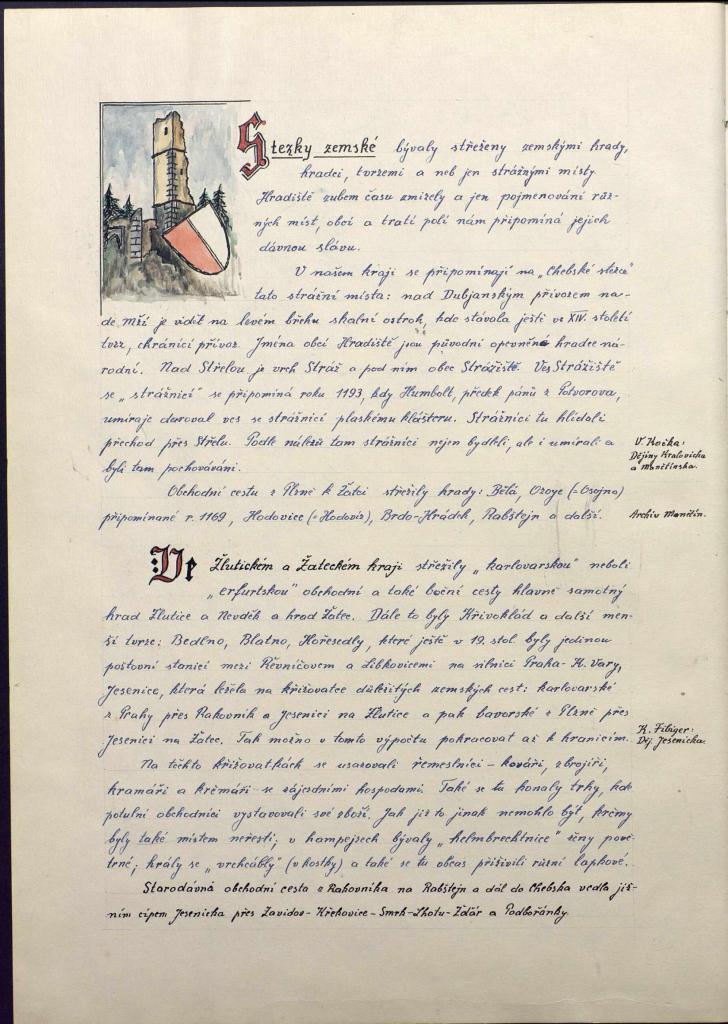 Stezky zemské bývaly střeženy zemskými hrady,
hradci, tvrzemi a neb jen strážnými místy.
Hradiště zubem času zmizely a jen pojmenování růz-
ných míst, obcí a tratí polí nám připomíná jejich
dávnou slávu.
V našem kraji se připomínají na „Chebské stezce"
tato strážní místa: nad Dubjanským přívozem na-
de Mží je vidět na levém břehu skalní ostroh, kde stávala ještě ve XIV. století
tvrz, chránící přívoz. Jména obcí Hradiště jsou původní opevněné hradce ná-
rodní. Nad Střelou je vrch Stráž a pod ním obec Strážiště. Ves Strážiště
se „strážnicí" se připomíná roku 1193, kdy Humbolt, předek pánů z Potvorova,
umíraje daroval ves se strážnicí plaskému klášteru. Strážníci tu hlídali
přechod přes Střelu. Podle nálezů tam strážníci nejen bydleli, ale i umírali a
byli tam pochováváni.
V. Kočka:
Dějiny Kralovicka
a Manětínska.
Obchodní cestu z Plzně k Žatci střežily hrady: Bělá, Ozoye (=Osojno)
připomínané r. 1169, Hodovice (=Hodoviz), Brdo-Hrádek, Rabštejn a další.
Archiv Manětín.
Ve Žlutickém a Žateckém kraji střežily „karlovarskou" neboli
„erfurtskou" obchodní a také boční cesty hlavně samotný
hrad Žlutice a Nevděk a hrad Žatec. Dále to byly Křivoklád a další men-
ší tvrze: Bedlno, Blatno, Hořesedly, které ještě v 19. stol. byly jedinou
poštovní stanicí mezi Řevničovem a Libkovicemi na silnici Praha-K. Vary,
Jesenice, která ležela na křižovatce důležitých zemských cest: karlovarské
z Prahy přes Rakovník a Jesenici na Žlutice a pak bavorské z Plzně přes
Jesenici na Žatec. Tak možno v tomto výpočtu pokračovat až k hranicím.
K. Fibiger:
Děj. Jesenicka.
Na těchto křižovatkách se usazovali řemeslníci – kováři, zbrojíři,
kramáři a krčmáři se zájezdními hospodami. Také se tu konaly trhy, kde
potulní obchodníci vystavovali své zboží. Jak již to jinak nemohlo být, krčmy
byly také místem neřesti; v hampejsech bývaly „helmbrechtnice" ženy pově-
trné; hrály se „vrchcábly" (v kostky) a také se tu občas přiživili různí lapkové.
Starodávná obchodní cesta z Rakovníka na Rabštejn a dál do Chebska vedla již-
ním cípem Jesenicka přes Zavidov-Křekovice-Smrk-Lhotu-Žďár a Podbořánky.